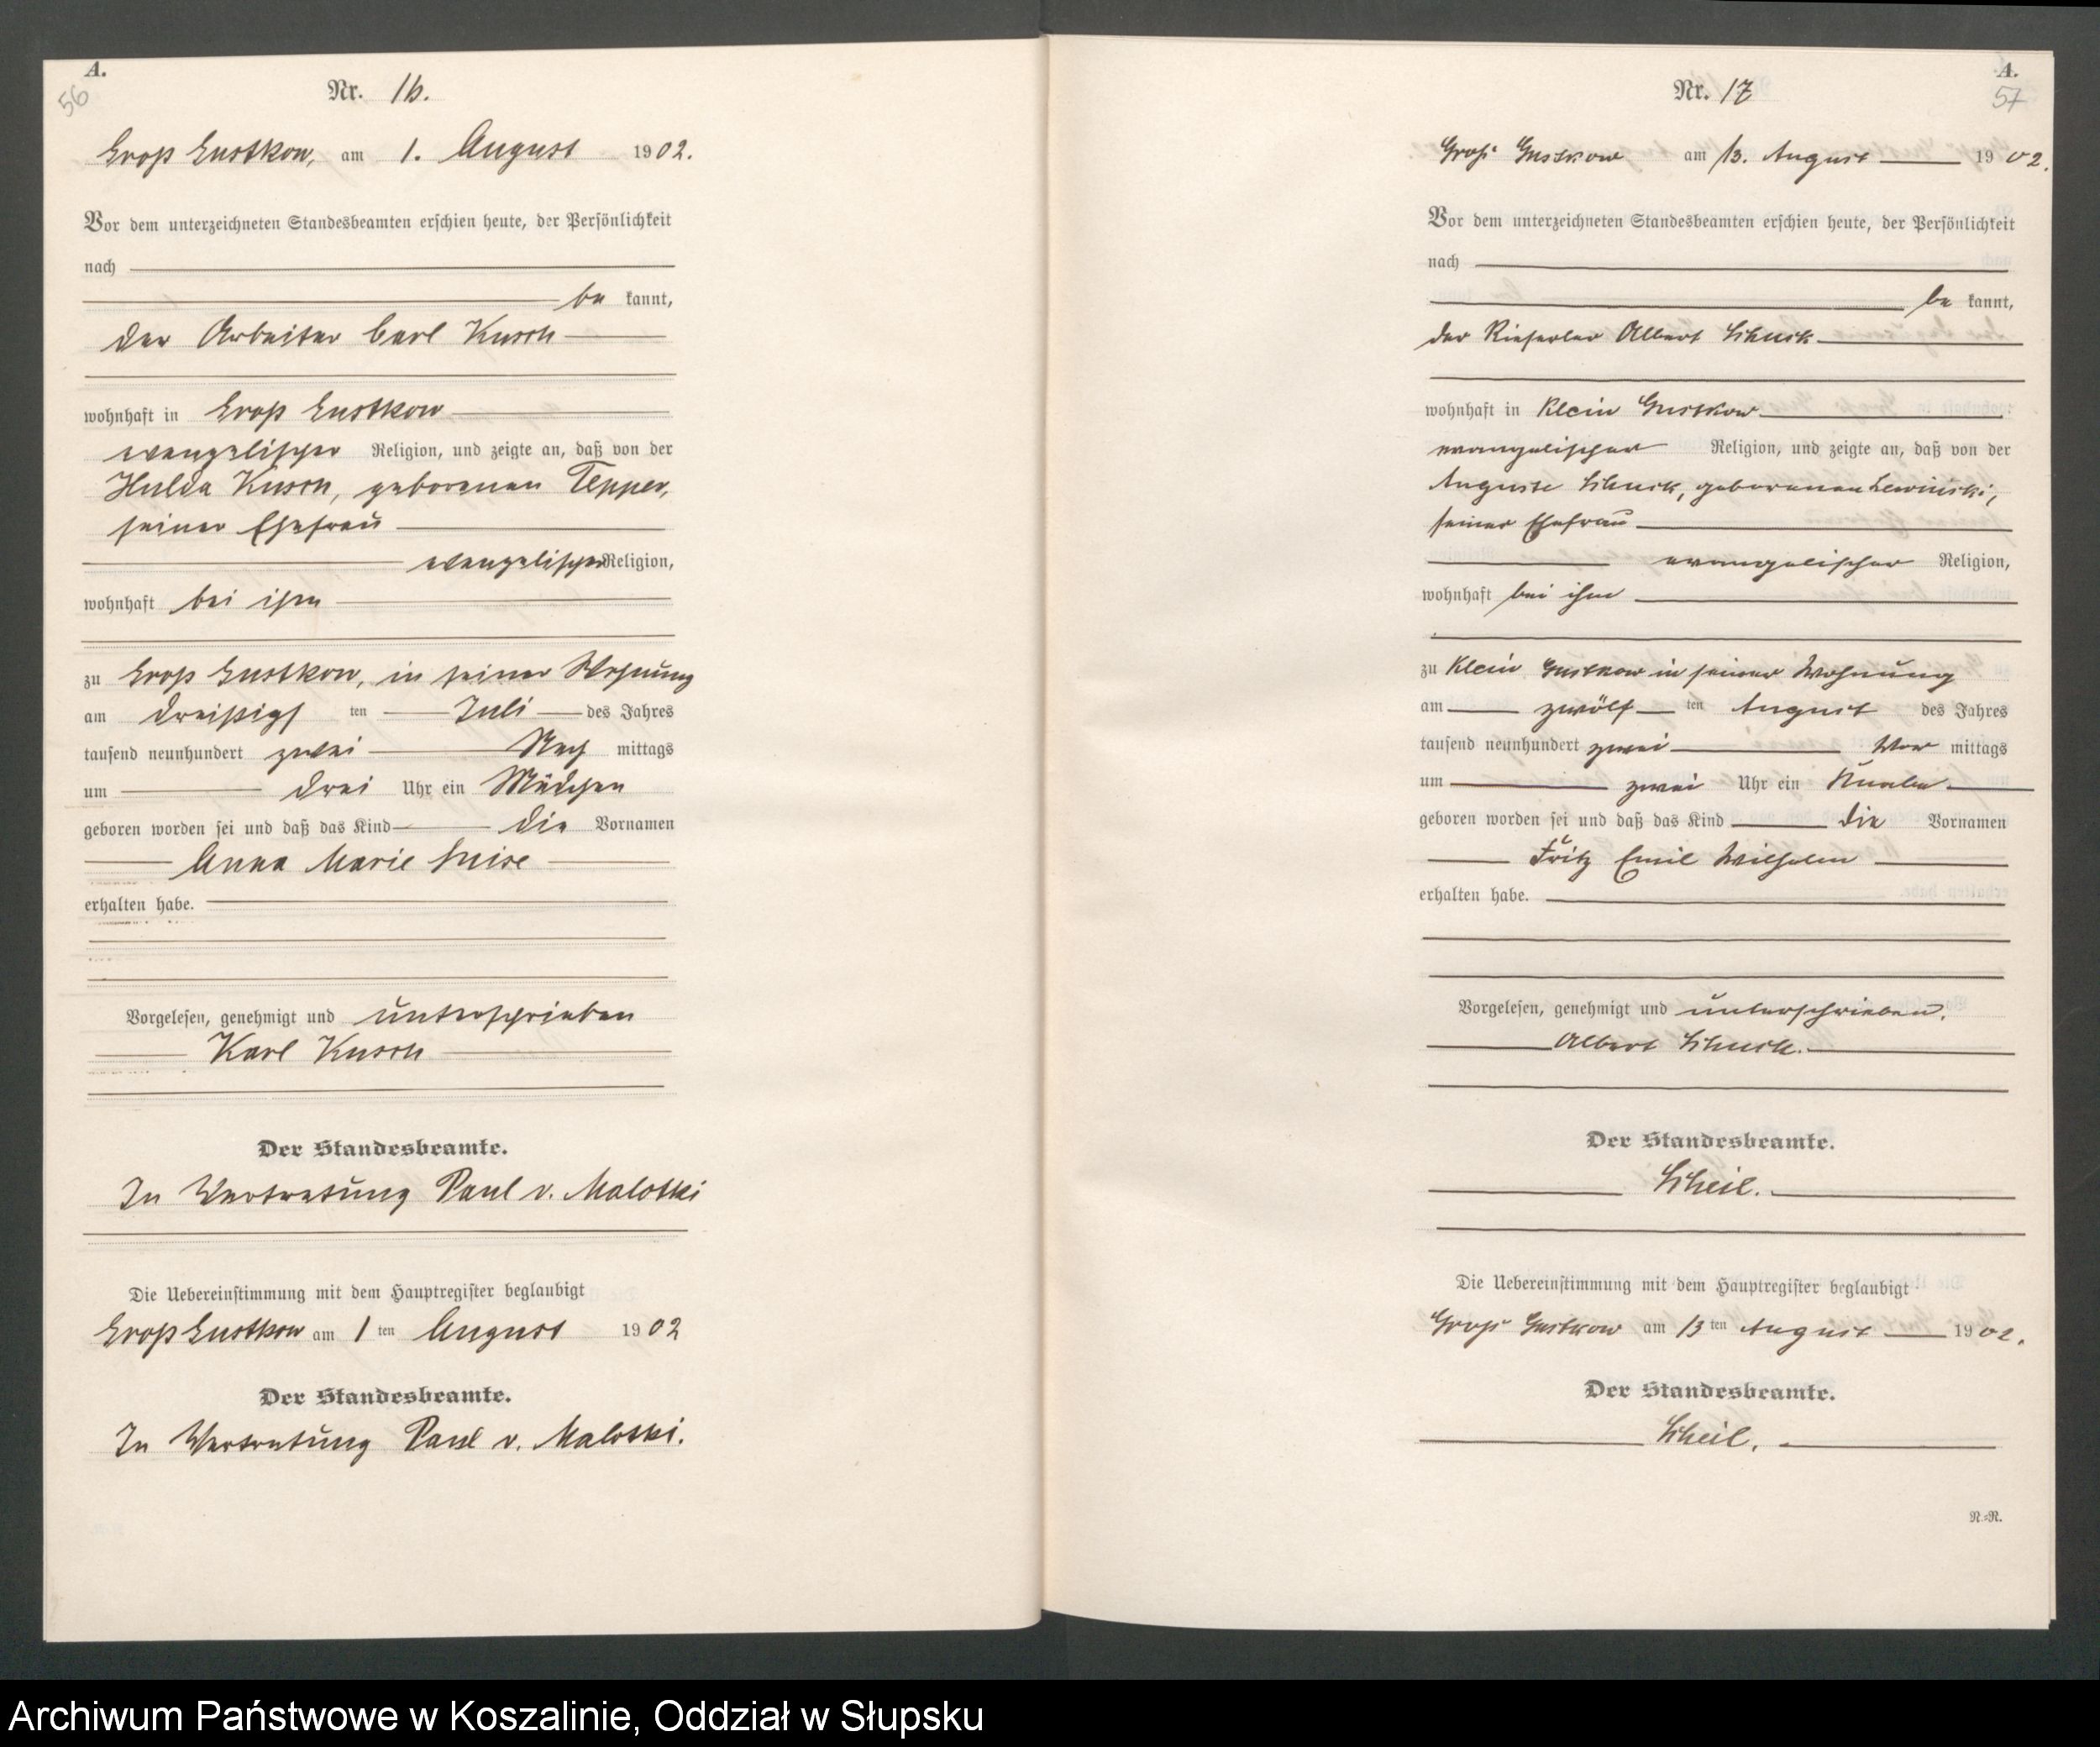 A.
56
Nr. 16.
Groß Gustkow, am 1. August 1902.
Vor dem unterzeichneten Standesbeamten erschien heute, der Persönlichkeit
nach
be kannt,
der Arbeiter Carl Kusch
wohnhaft in Groß Gustkow
evangelischer Religion, und zeigte an, daß von der
Hulda Kusch, geborenen Tepper,
seiner Ehefrau
evangelischer Religion,
wohnhaft bei ihm
zu Groß Gustkow, in seiner Wohnung
am dreißigsten Juli des Jahres
tausend neunhundert zwei Nach mittags
um drei Uhr ein Mädchen
geboren worden sei und daß das Kind die Vornamen
Anna Marie Luise
erhalten habe.
Vorgelesen, genehmigt und unterschrieben
Karl Kusch
Der Standesbeamte.
In Vertretung Paul v. Malotki
Die Uebereinstimmung mit dem Hauptregister beglaubigt
Groß Gustkow am 1 ten August 1902
Der Standesbeamte.
In Vertretung Paul v. Malotki.
A.
57
Nr. 17
Groß Gustkow am 13. August 1902.
Vor dem unterzeichneten Standesbeamten erschien heute, der Persönlichkeit
nach
be kannt,
der Albert Schuck
wohnhaft in Klein Gustkow
evangelischer Religion, und zeigte an, daß von der
Auguste Schuck, geborenen Lewinski,
seiner Ehefrau
evangelischer Religion,
wohnhaft bei ihm
zu Klein Gustkow in seiner Wohnung
am zwölf ten August des Jahres
tausend neunhundert zwei Vor mittags
um zwei Uhr ein Knabe
geboren worden sei und daß das Kind die Vornamen
Fritz Emil Wilhelm
erhalten habe.
Vorgelesen, genehmigt und unterschrieben.
Albert Schuck.
Der Standesbeamte.
Scheil.
Die Uebereinstimmung mit dem Hauptregister beglaubigt
Groß Gustkow am 13 ten August 1902.
Der Standesbeamte.
Scheil.
N.=N.
Archiwum Państwowe w Koszalinie, Oddział w Słupsku